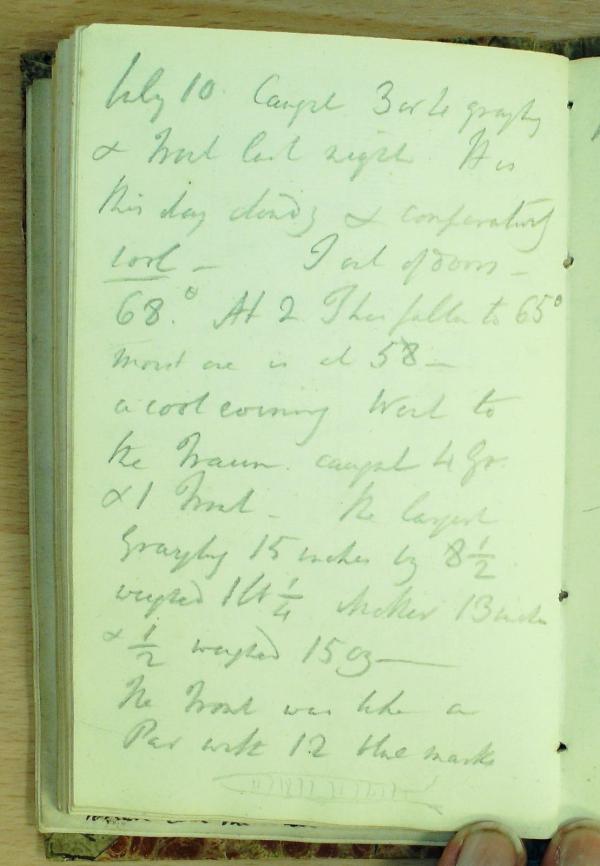 July 10 Caught 3 or 4 grayling
& Trout last night It is
this day cloudy & comparatively
cool – T out of doors –
68.° At 2 T has fallen to 65°
moist one is at 58 –
a cool evening Went to
the Traun. caught 4 Gr.
& 1 Trout – The largest
Grayling 15 inches by 8 1/2
weighed 1 lb 1/4 Another 13 inches
& 1/2 weighed 15 oz —
The Trout was like a
Par with 12 blue marks